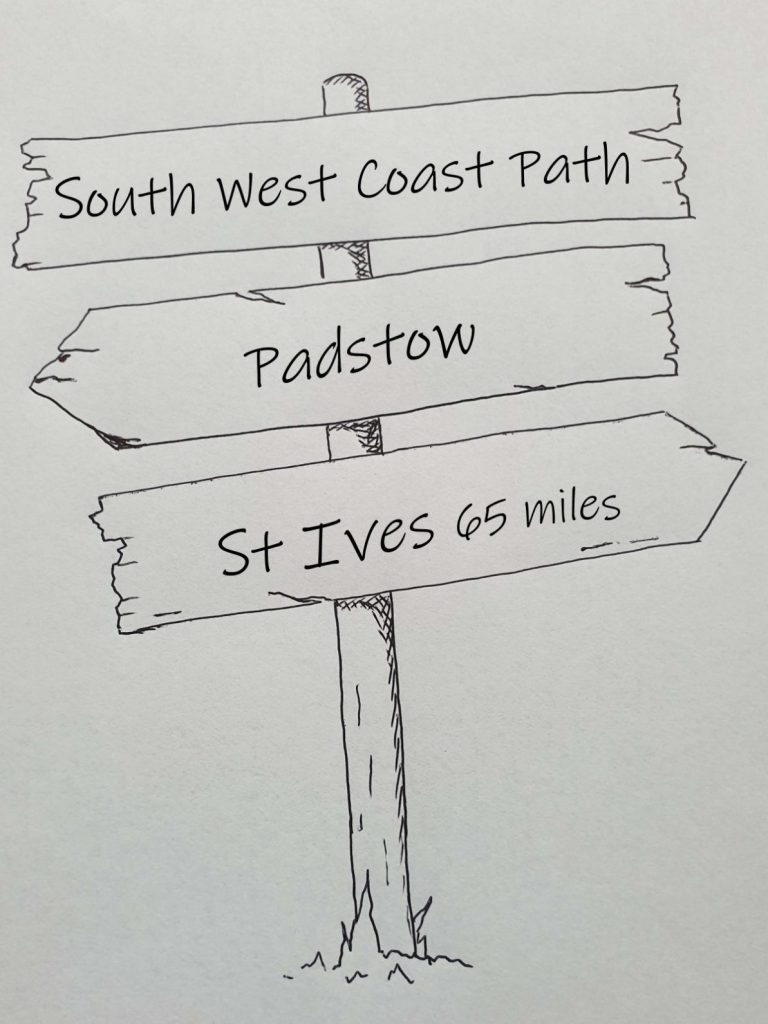 South West Coast Path
Padstow
St Ives 65 miles